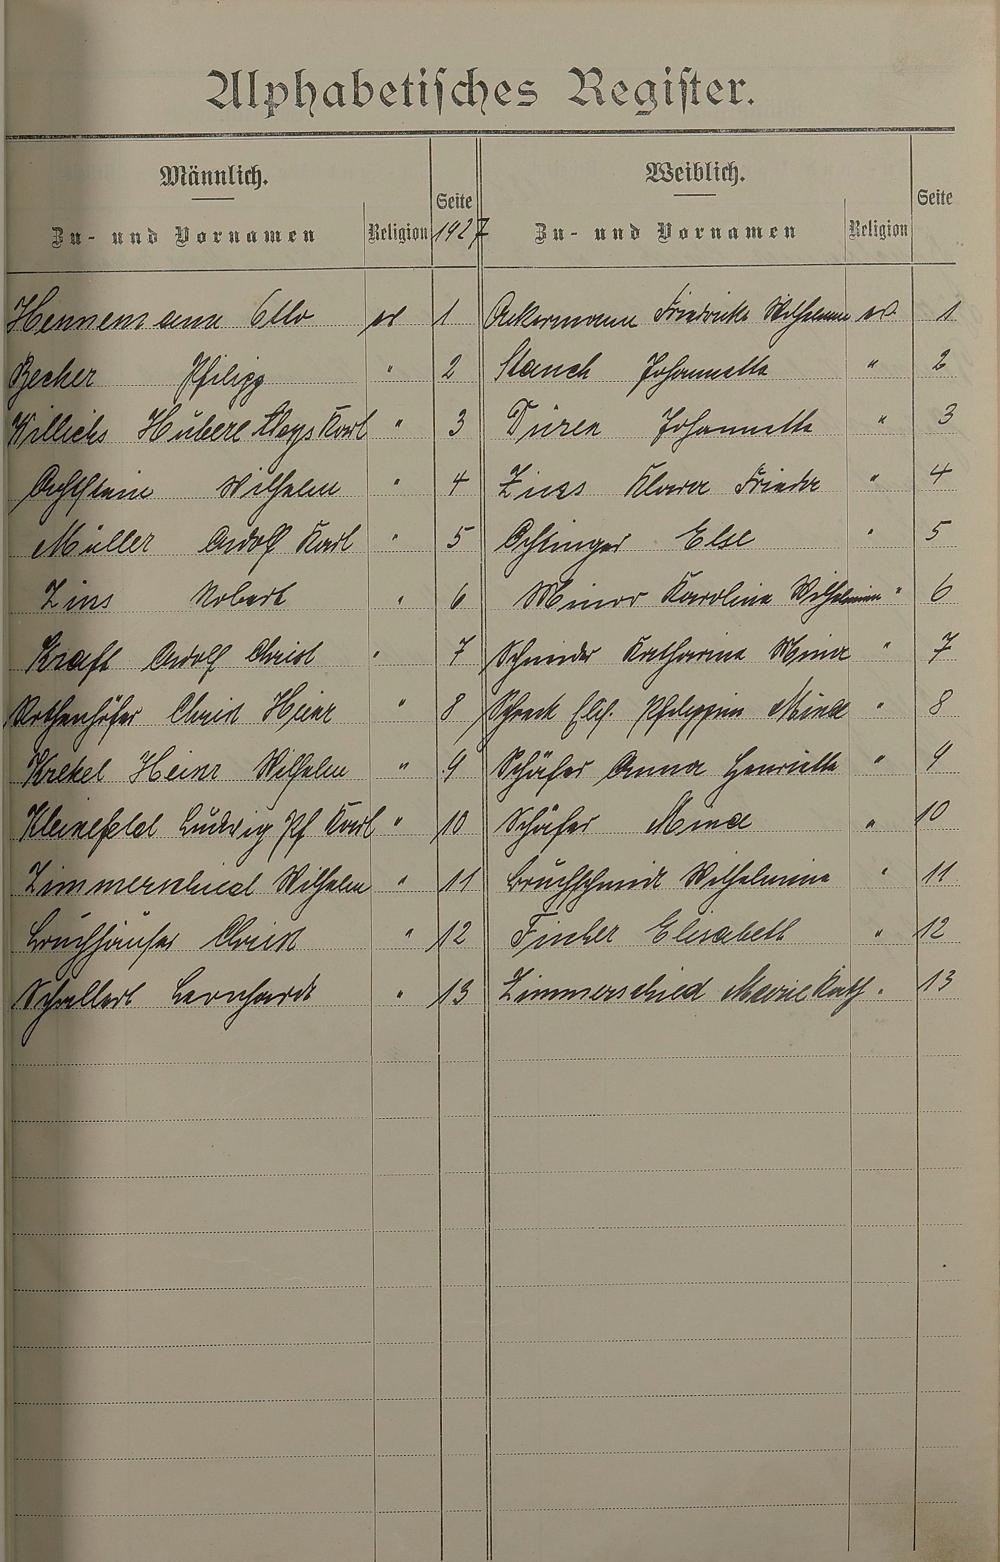 Alphabetisches Register.
Männlich. Weiblich.
Zu- und Vornamen Religion Seite 1927 Zu- und Vornamen Religion Seite
Hennemann Otto ev 1 Ackermann Friedricke Wilhelmine ev. 1
Becher Philipp " 2 Stauch Johannette " 2
Willichs Hubert Aloys Karl " 3 Türen Johannette " 3
Achtstein Wilhelm " 4 Zins Klara Frieda " 4
Müller Adolf Karl " 5 Else " 5
Zins Robert " 6 Minor Karoline Wilhelmine " 6
Kraft Adolf Christ " 7 Schneider Katharina Mina " 7
Rothenhöfer Christ Heinr " 8 Schreck Elis. Philippine Mina " 8
Krekel Heinr Wilhelm " 9 Schäfer Anna Henriette " 9
Kleinefeld Ludwig Pf Karl " 10 Schäfer Mina " 10
Zimmerschied Wilhelm " 11 Bruchschmidt Wilhelmine " 11
Bruchhäuser Christ " 12 Fischer Elisabeth " 12
Schallert Bernhardt " 13 Zimmerschied Marie Kath " 13